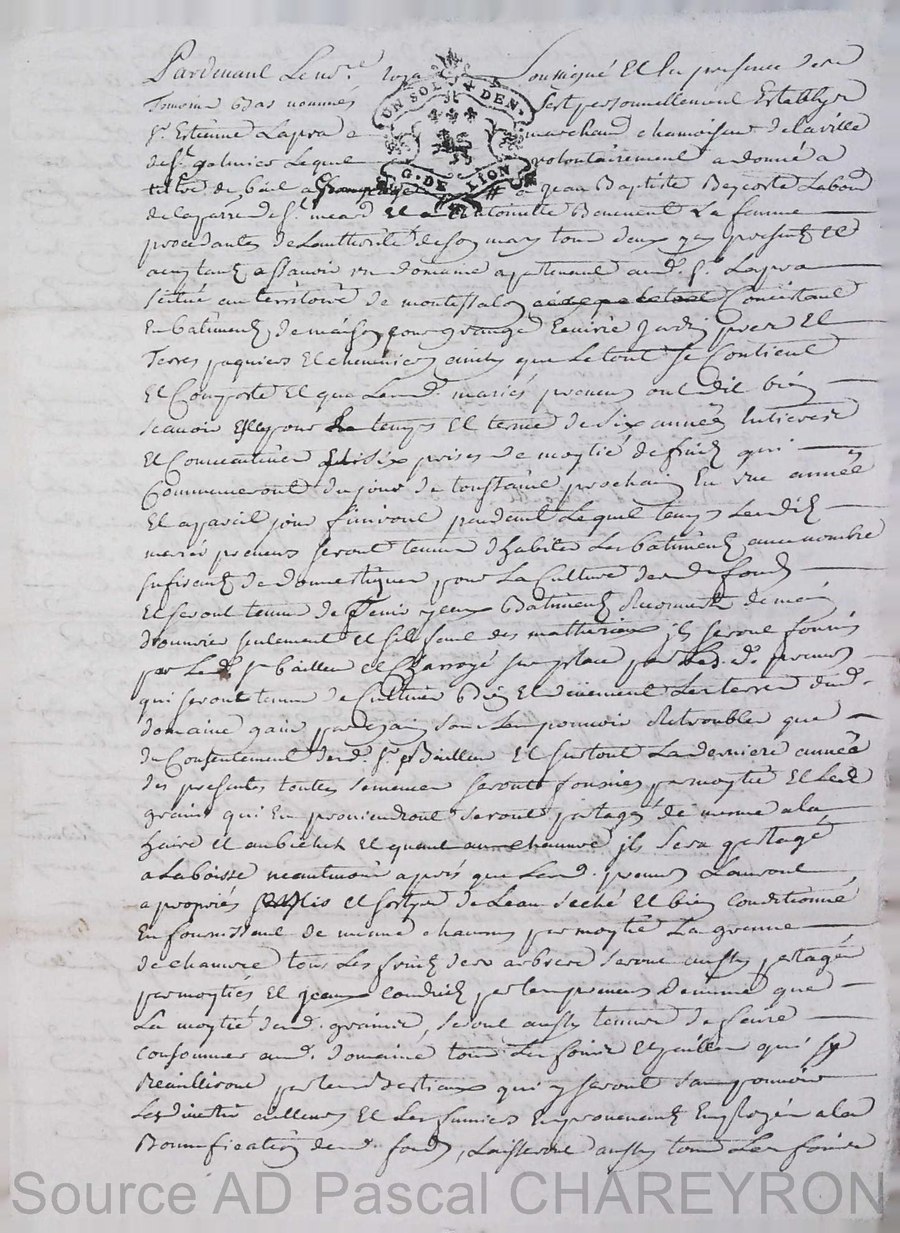 Pardevant Le no.re royal Soussigné Et En presence des
Temoins Bas nommés fust personnellement Establys
UN SOL 4 DEN.
G. DE LION
S.r Estienne Lapra marchand chamoiseur de la ville
de S.t galmier Lequel volontairement a donné a
tiltre de bail a Grangeage a Jean Baptiste Beycoste Labour
de la parr.e de S.t mea.d Et a Antoinette Benevent Sa femme
procedante de Lauthorité de son mary tous deux ycy presents Et
aceptants assavoir un domaine apartenant aud. S.r Lapra
scitué au territoire de montessalon Consistant
En batiments de maison cour grange Ecurie Jardin prez Et
Terres paquiers Et cheneviers ainsy que Le tout Se Contient
Et Comporte Et que Lesd. mariés preneurs ont dit bien
scavoir pour Le temps Et terme de Six années Entieres
Et Consecutives Et Six prises de moytié de fruits qui
Commenceront du jour de toussaint prochain En une année
Et a pareil jour finiront pendant Lequel temps Lesdits
mariés preneurs seront tenus d'habiter Les batiments avec nombre
sufisent de domestiques pour La Culture desd. fonds
Et seront tenus de Tenir yceux Batiments de main
d'ouvrier seulement Et sil faut des matheriaux ils seront fournis
par Led. S.r bailleur Et Charroyé sur place par Les d. preneurs
qui seront tenus de Cultiver Bien Et duement Les terres dud.
domaine gain par gain sans Les pouvoir Retroubler que
du Consentement dud. S.r Bailleur Et surtout La derniere année
des presentes toutes semences seront fournies par moytié Et Les
grains qui En proviendront seront partagés de meme a la
Et quant chanvre ils Sera partagé
neantmoins aprés que Lesd. preneurs Lauront
apropriés Et sortyr de Leau seché Et bien Conditionné
En fournissent de meme chacuns par moytié La grenne
de chanvre tous Les fruits des arbres seront aussy partagés
par moytiés Et yceux Conduits par les preneurs de meme que
La moytié desd. grains, seront aussy tenus de faire
consommer aud. domaine tous Les foins Et pailles qui sy
Reuilliront par les Bestiaux qui y seront sans pouvoir
Les divertir ailleurs Et Les fumiers En provenants Employés a la
Bonnification desd. fonds, Laisseront aussy tous Les foins
Source AD Pascal CHAREYRON